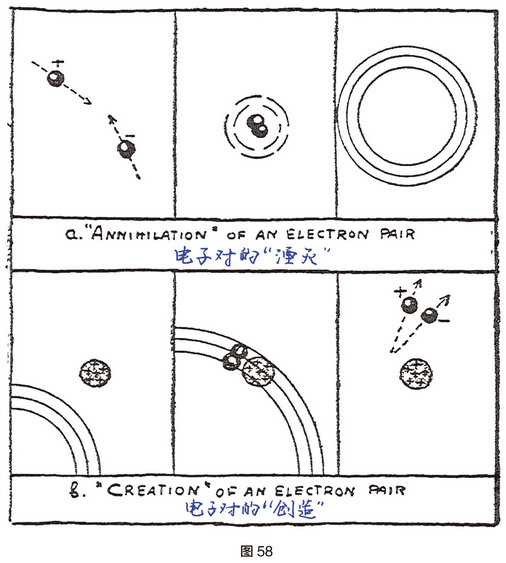 +
-
a. "ANNIHILATION" OF AN ELECTRON PAIR
电子对的"湮灭"
+
-
b. "CREATION" OF AN ELECTRON PAIR
电子对的"创造"
图 58